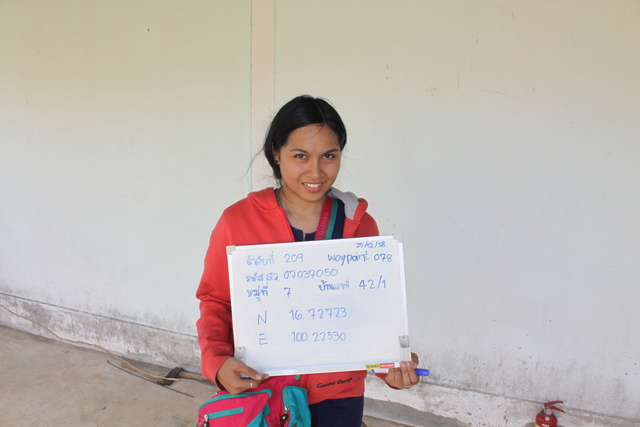 25/12/58
ลำดับที่ 209 Waypoint 078
รหัส สว 07037050
หมู่ที่ 7 บ้านเลขที่ 42/1
N 16.72723
E 100.22530